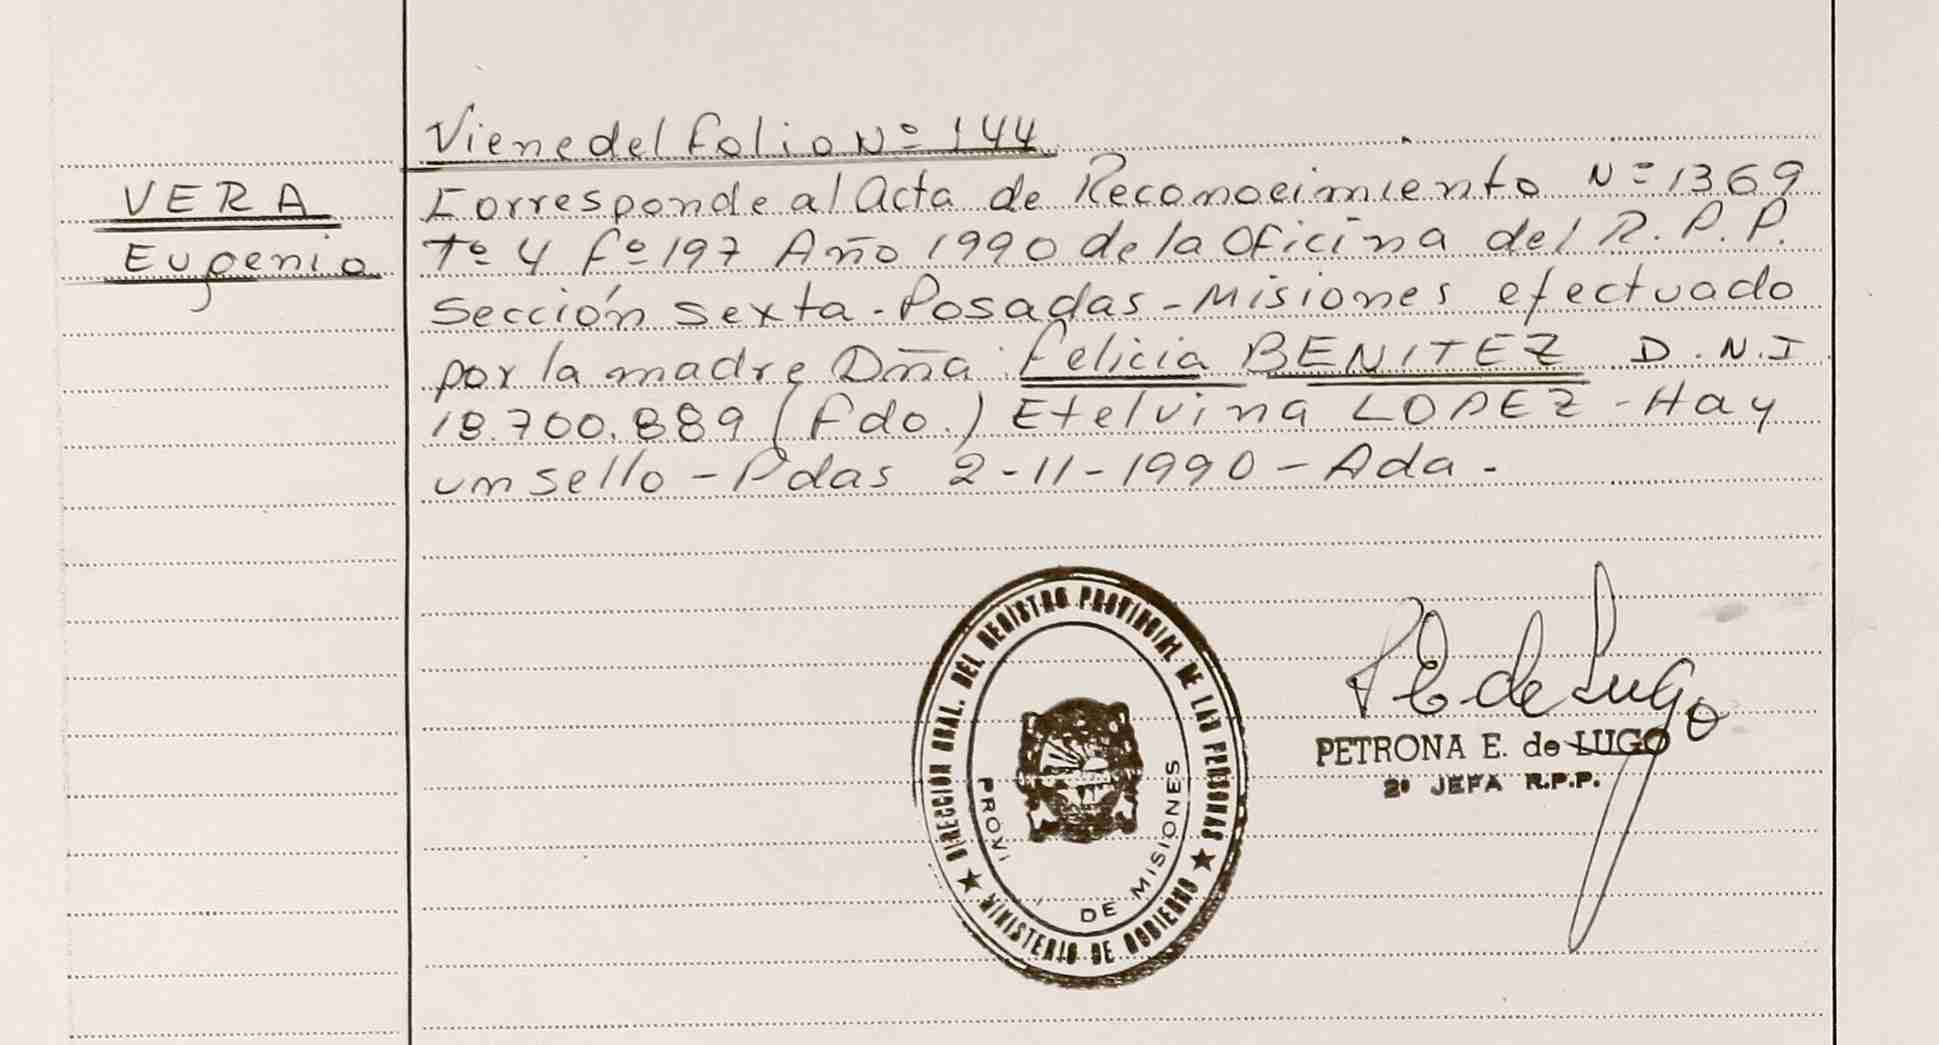 Viene del folio Nº 144
VERA
Eugenio
Corresponde al Acta de Reconocimiento Nº 1369
Tº 4 fº 197 Año 1990 de la Oficina del R.P.P.
Sección sexta - Posadas - Misiones efectuado
por la madre Dña Felicia BENITEZ D.N.I
18.700.889 (Fdo.) Etelvina LOPEZ - Hay
un sello - Pdas 2-11-1990 - Ada.
DIRECCION GRAL. DEL REGISTRO PROVINCIAL DE LAS PERSONAS
★ MINISTERIO DE GOBIERNO ★
DE MISIONES
P E de Lugo
PETRONA E. de LUGO
2º JEFA R.P.P.